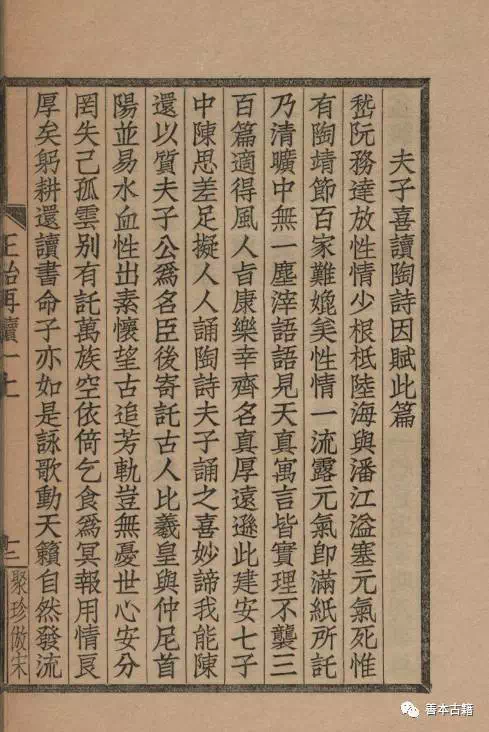 夫子喜讀陶詩因賦此篇
嵇阮務達放性情少根柢陸海與潘江溢塞元氣死惟
有陶靖節百家難媲美性情一流露元氣卽滿紙所託
乃清曠中無一塵滓語語見天真寓言皆實理不襲三
百篇適得風人旨康樂幸齊名真厚遠遜此建安七子
中陳思差足擬人人誦陶詩夫子誦之喜妙諦我能陳
還以質夫子公爲名臣後寄託古人比羲皇與仲尼首
陽並易水血性出素懷望古追芳軌豈無憂世心安分
罔失己孤雲别有託萬族空依倚乞食爲冥報用情良
厚矣躬耕還讀書命子亦如是詠歌動天籟自然發流
正始再續一上
三
聚珍倣宋
善本古籍